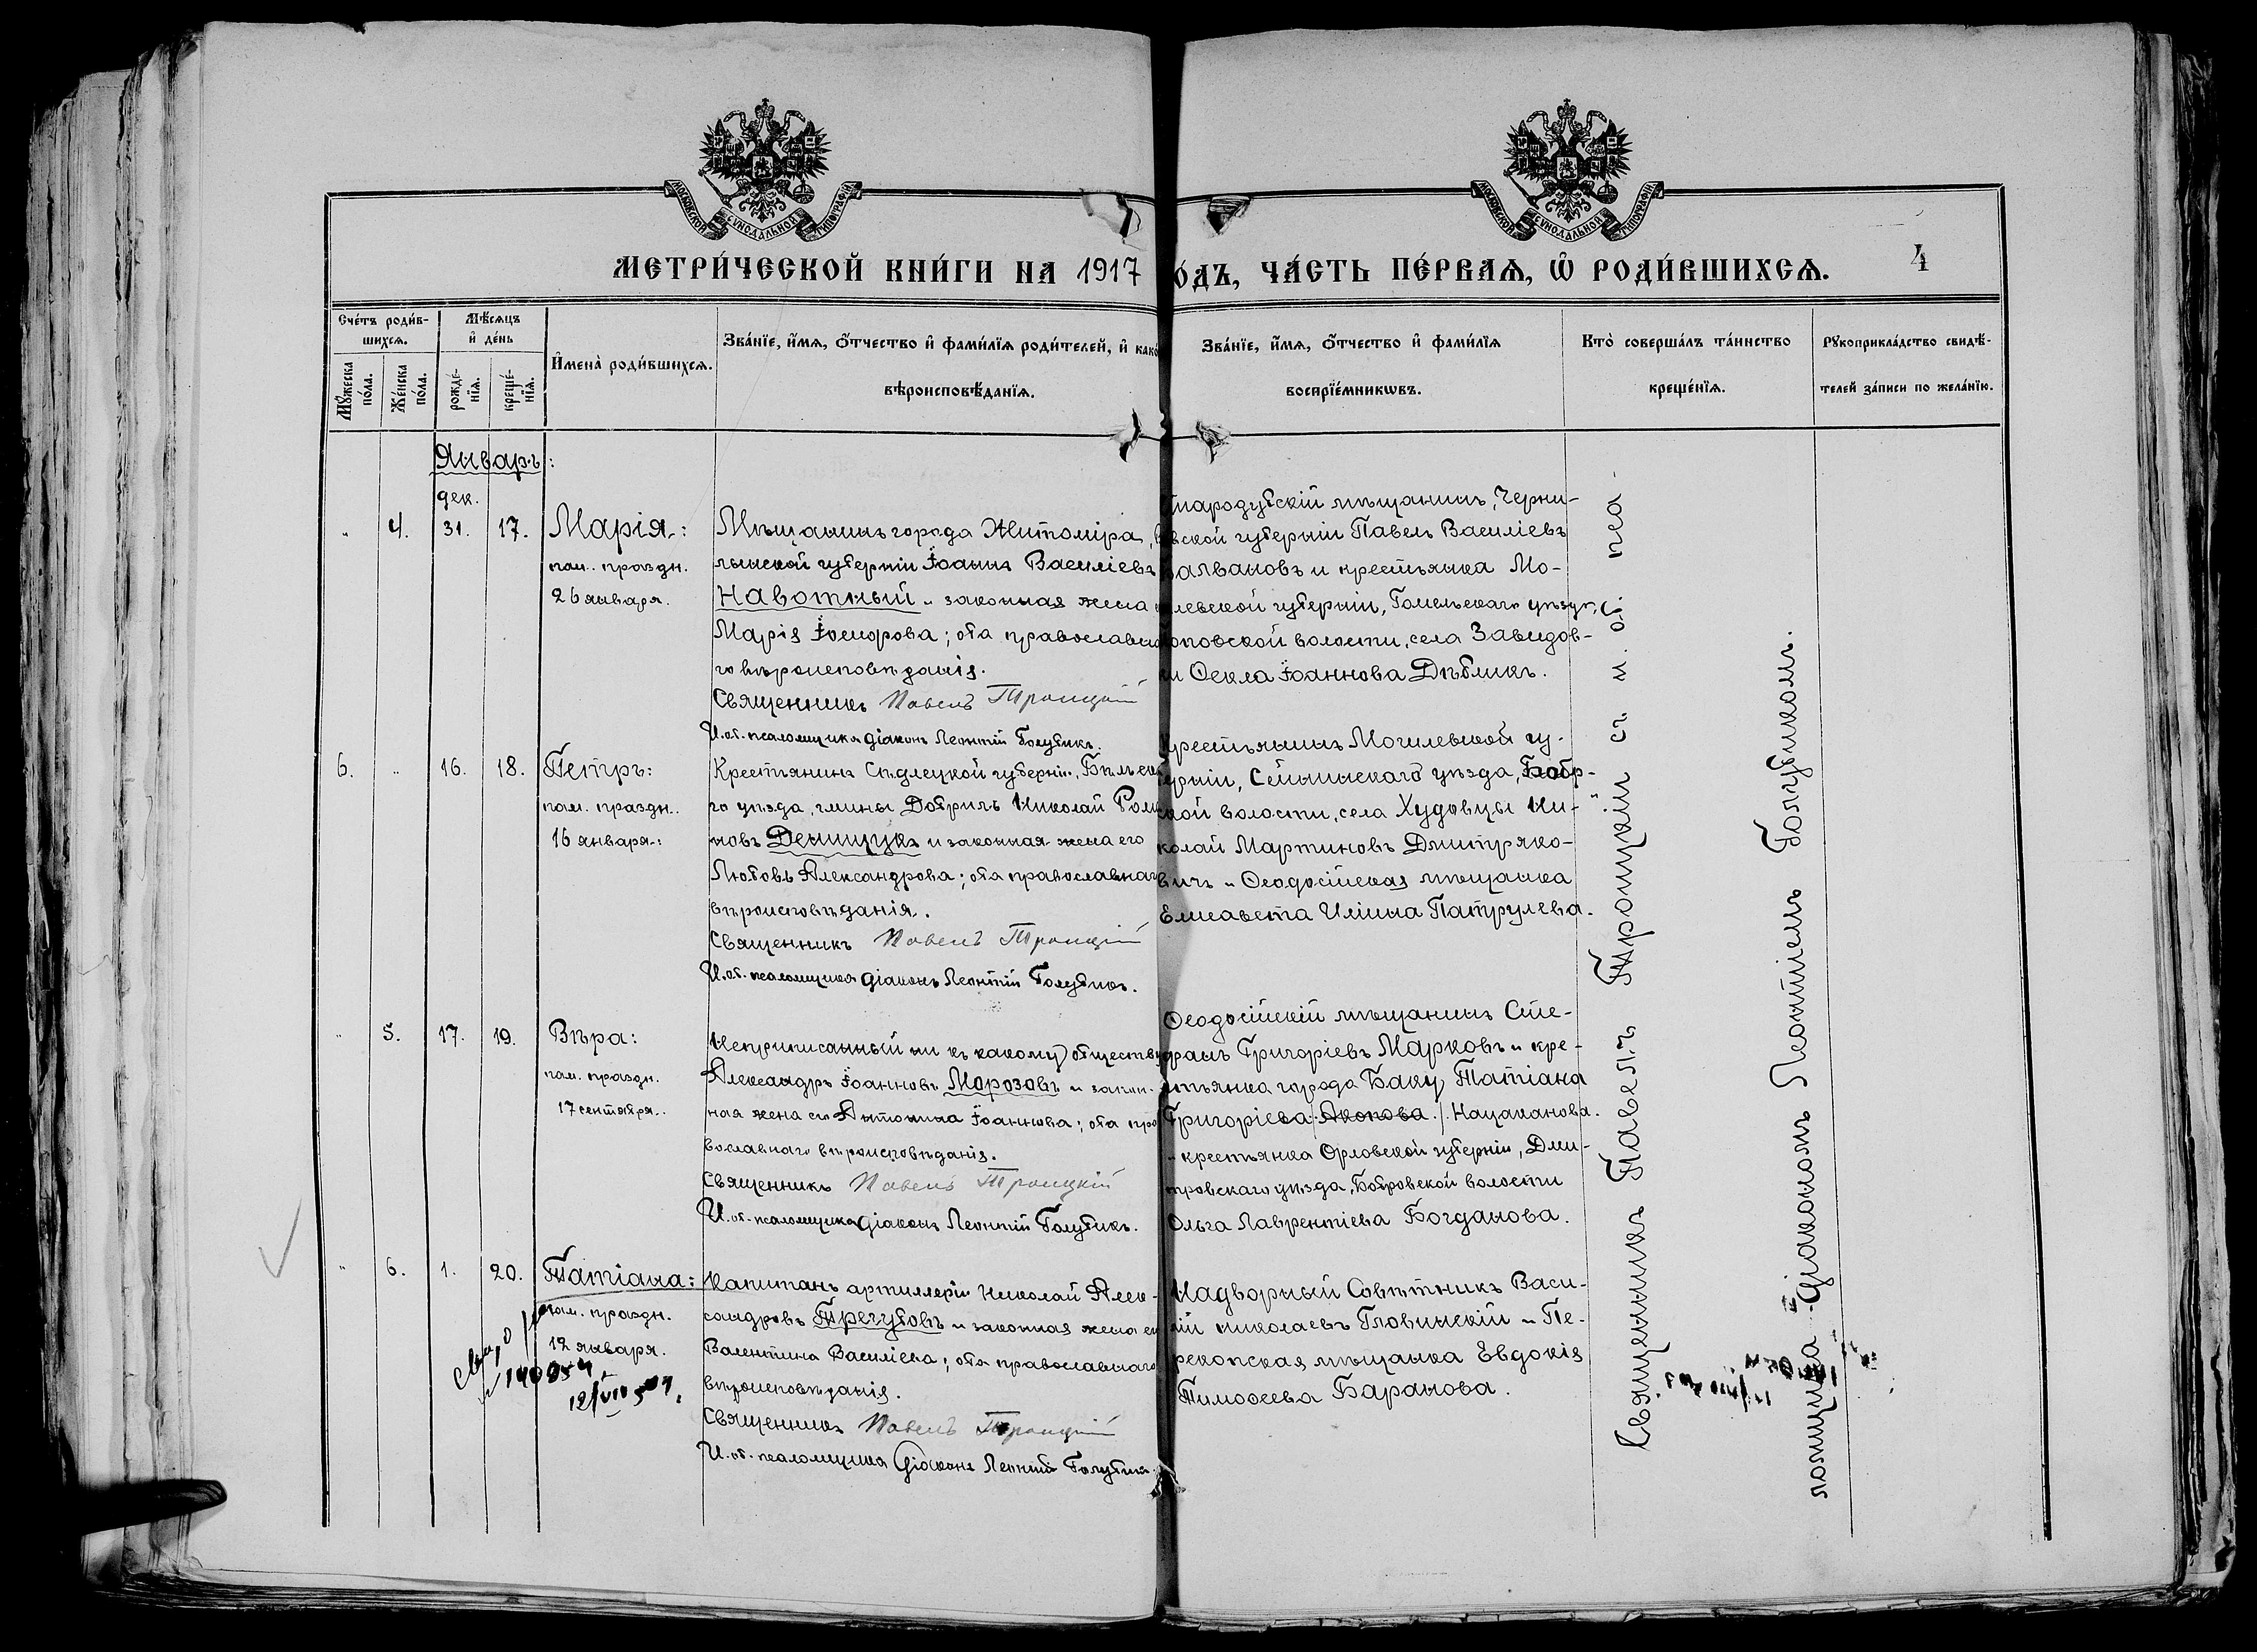 МОСКОВСКОЙ СѴНОДАЛЬНОЙ ТИПОГРАФІИ
МОСКОВСКОЙ СѴНОДАЛЬНОЙ ТИПОГРАФІИ
МЕТРИ́ЧЕСКОЙ КНИ́ГИ НА 1917
О́ДЪ, ЧА́СТЬ ПЕ́РВАѦ, Ѡ҆ РОДИ́ВШИХСѦ.
4
Сче́тъ роди́в-
шихсѧ.
Мꙋ́жеска по́ла.
Же́нска по́ла.
Мѣ́сѧцъ
и҆ де́нь
рожде́-
нїѧ.
креще́-
нїѧ.
И҆мена̀ роди́вшихсѧ.
Зва́нїе, и҆́мѧ, о҆́тчество и҆ фами́лїѧ роди́телей, и҆ како
вѣроисповѣ́данїѧ.
Зва́нїе, и҆́мѧ, о҆́тчество и҆ фами́лїѧ
воспрїе́мникѡвъ.
Кто̀ соверша́лъ та́инство
креще́нїѧ.
Рꙋкоприкла́дство свидѣ́-
телей за́писи по жела́нїю.
Январь:
дек.
" 4. 31. 17. Марія:
пам. праздн.
26 января.
Мѣщанинъ города Житоміра,
лынской губерніи Іоаннъ Василіевъ
Навотный и законная жена
Марія Іосифова; оба православна
го вѣроисповѣданія.
Священникъ Павелъ Троицкій
И. об. псаломщика діаконъ Леонтій Голубикъ.
тародубскій мѣщанинъ, Черни-
вской губерніи Павелъ Василіевъ
алвановъ и крестьянка Мо-
левской губерніи, Гомельскаго уѣзда,
повской волости, села Завидов-
и Ѳекла Іоаннова Дѣбликъ.
6. " 16. 18. Петръ:
пам. праздн.
16 января:
Крестьянинъ Сѣдлецкой губерніи, Бѣльска
го уѣзда, гмины Добрынь Николай Рома
новъ Демищукъ и законная жена его
Любовь Александрова; оба православнаг
вѣроисповѣданія.
Священникъ Павелъ Троицкій
И. об. псаломщика діаконъ Леонтій Голубикъ.
крестьянинъ Могилевской гу-
ерніи, Сѣннинскаго уѣзда, Бобр-
ской волости, села Худовцы Ни-
колай Мартиновъ Дмитряко-
вичъ и Ѳеодосійская мѣщанка
Елисавета Иліина Патрулева.
" 5. 17. 19. Вѣра:
пам. праздн.
17 сентября.
Неприписанный ни къ какому обществу
Александръ Іоанновъ Морозовъ и закон-
ная жена его Антонина Іоаннова; оба пра
вославнаго вѣроисповѣданія.
Священникъ Павелъ Троицкій
И. об. псаломщика діаконъ Леонтій Голубикъ.
Ѳеодосійскій мѣщанинъ Сте-
фанъ Григоріевъ Марковъ и кре-
стьянка города Баку Татіана
Григоріева Акопова. Нацаканова.
и крестьянка Орловской губерніи, Дми-
тровскаго уѣзда, Бобровской волости
Ольга Лаврентіева Богданова.
" 6. 1. 20. Татіана:
пам. праздн.
12 января.
Капитанъ артиллеріи Николай Алек-
сандровъ Трегубовъ и законная жена ег
Валентина Василіева; оба православнаго
вѣроисповѣданія.
Священникъ Павелъ Троицкій
И. об. псаломщика Діаконъ Леонтій Голубикъ.
Надворный Совѣтникъ Васи-
лій Николаевъ Гловинскій и Пе-
рекопская мѣщанка Евдокія
Тимоѳеева Баранова.
Священникъ Павелъ Троицкій съ и. об. пса-
ломщика діакономъ Леонтіемъ Голубикомъ.